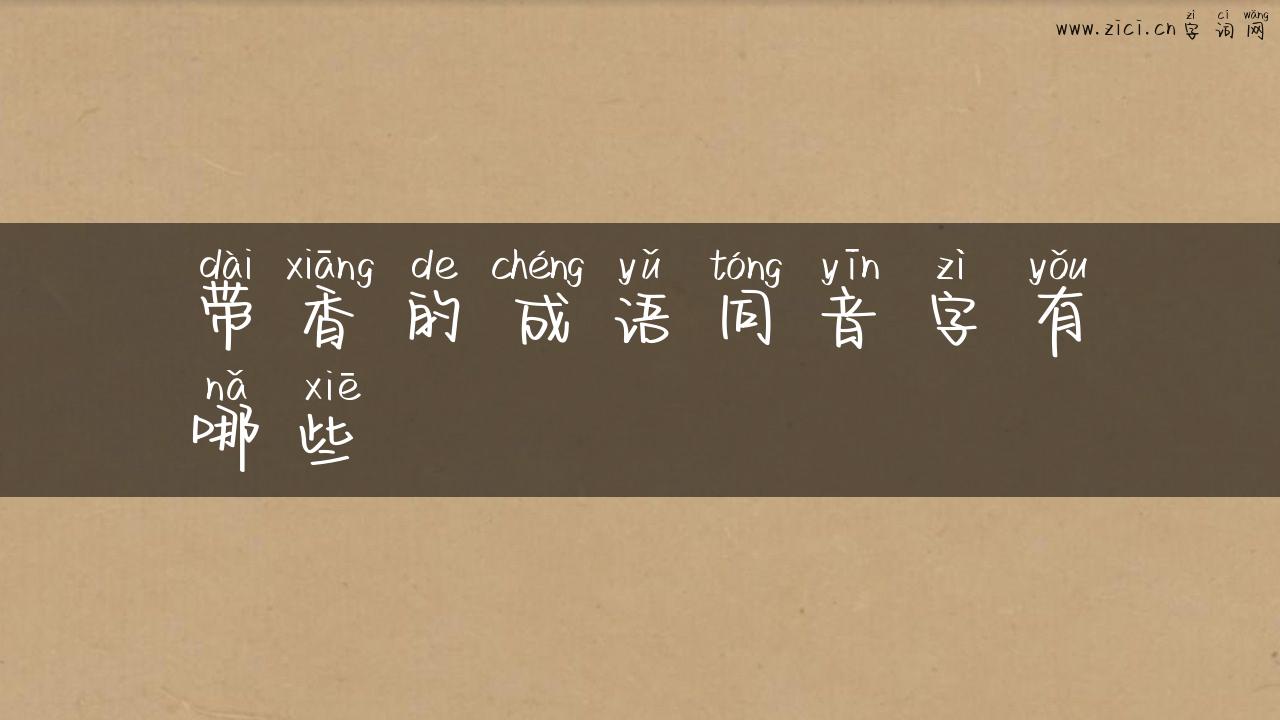 zì cí wǎng
www.zici.cn 字词网
dài xiāng de chéng yǔ tóng yīn zì yǒu
带香的成语同音字有
nǎ xiē
哪些